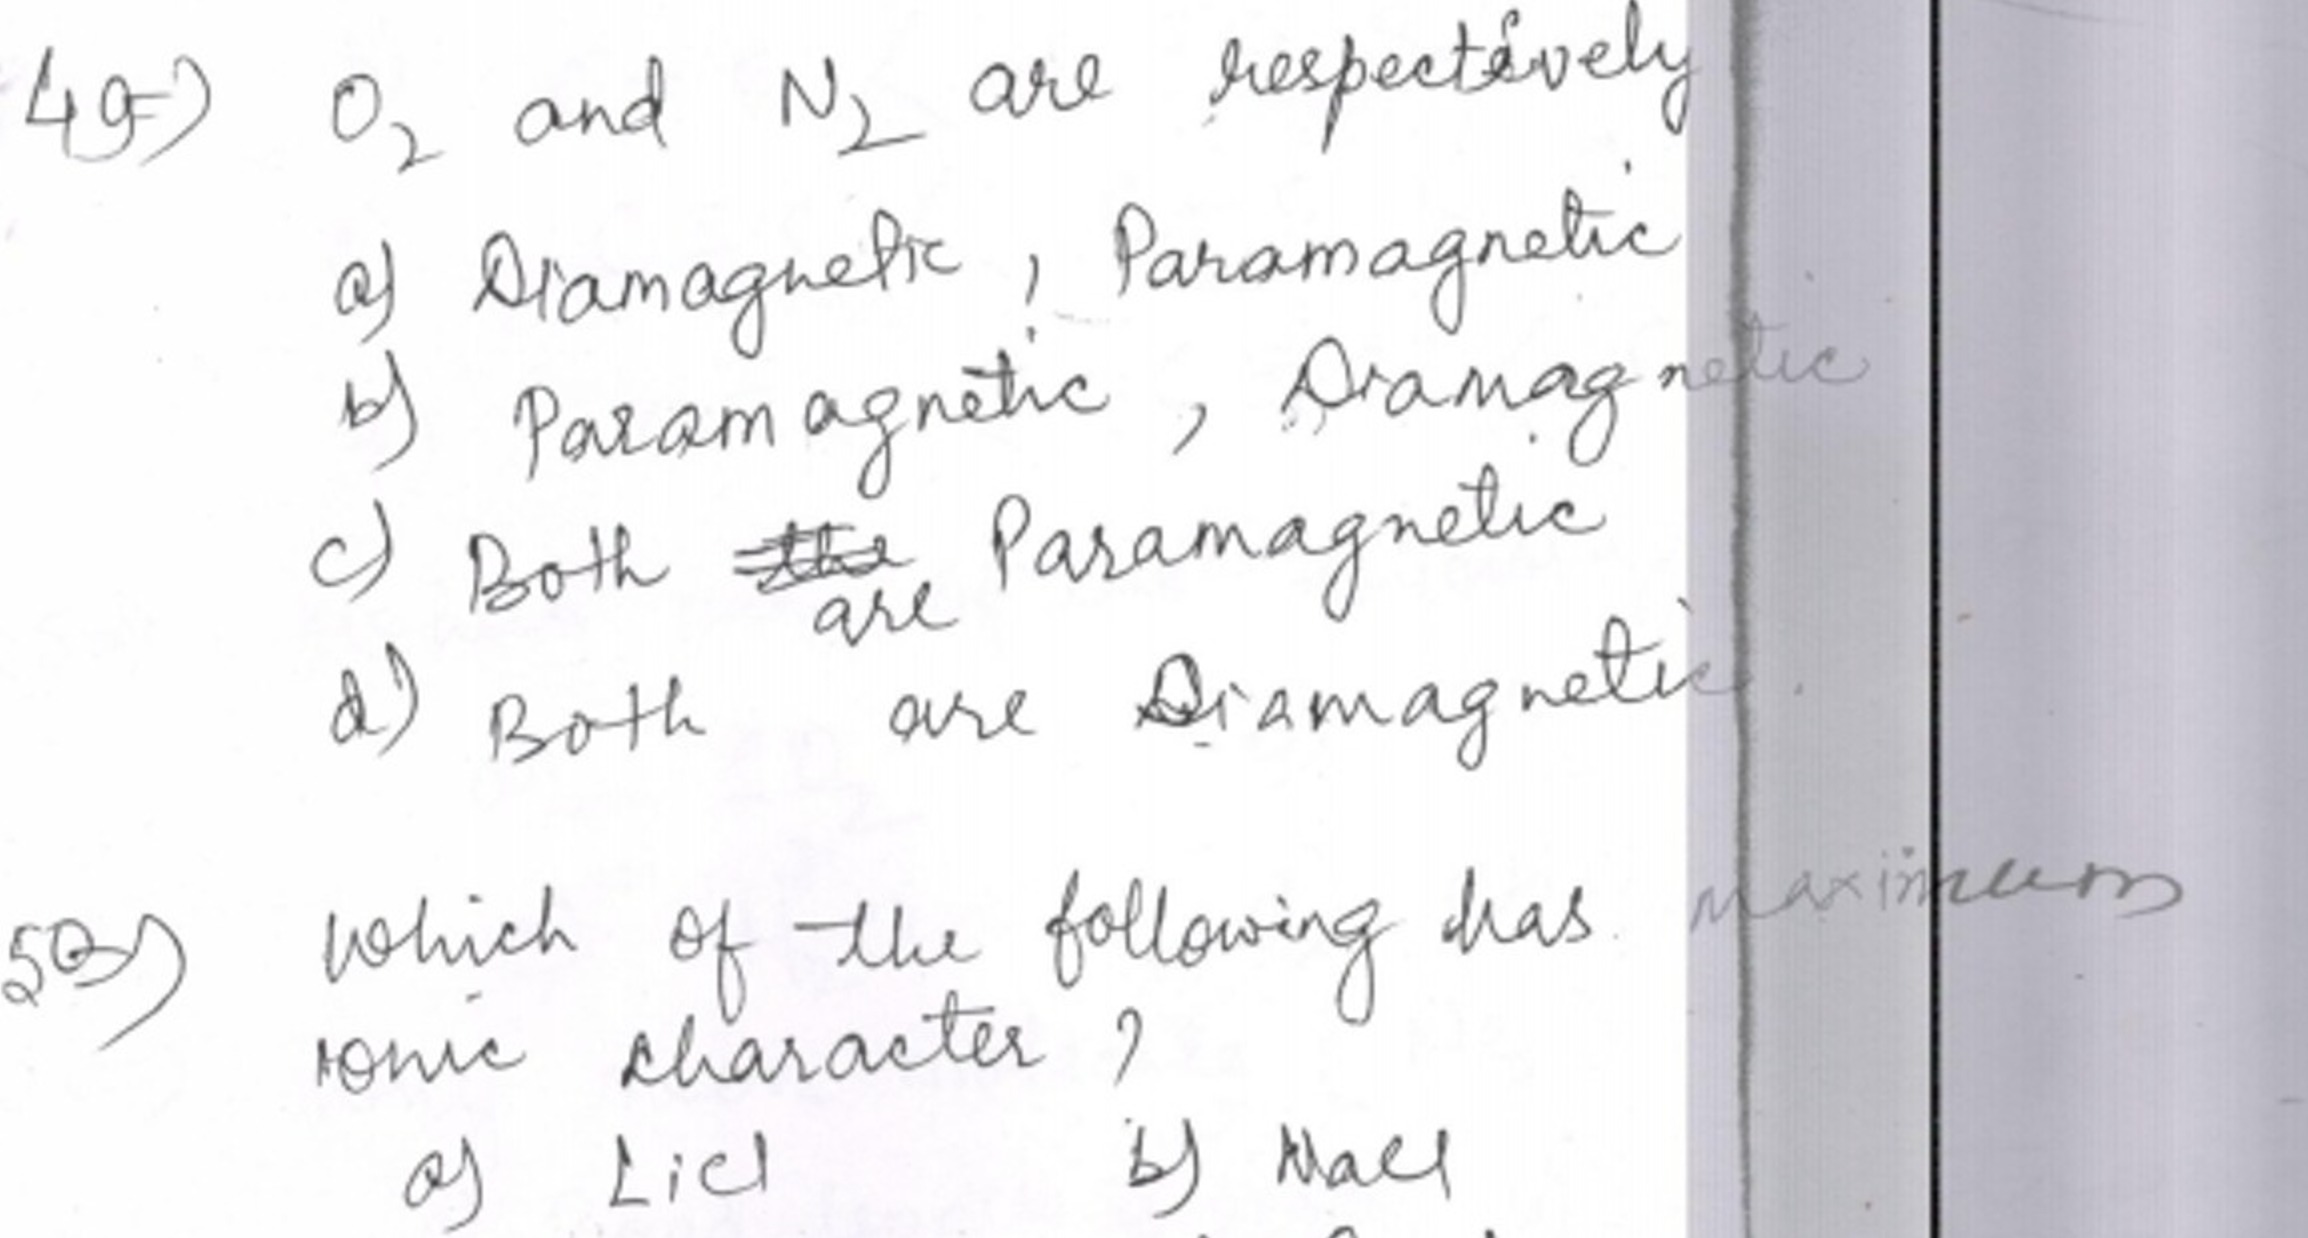 49) O₂ and N₂ are respectively
a) Diamagnetic, Paramagnetic
b) Paramagnetic, Diamagnetic
c) Both are Paramagnetic
d) Both are Diamagnetic.
50) Which of the following has maximum
ionic character?
a) LiCl b) NaCl